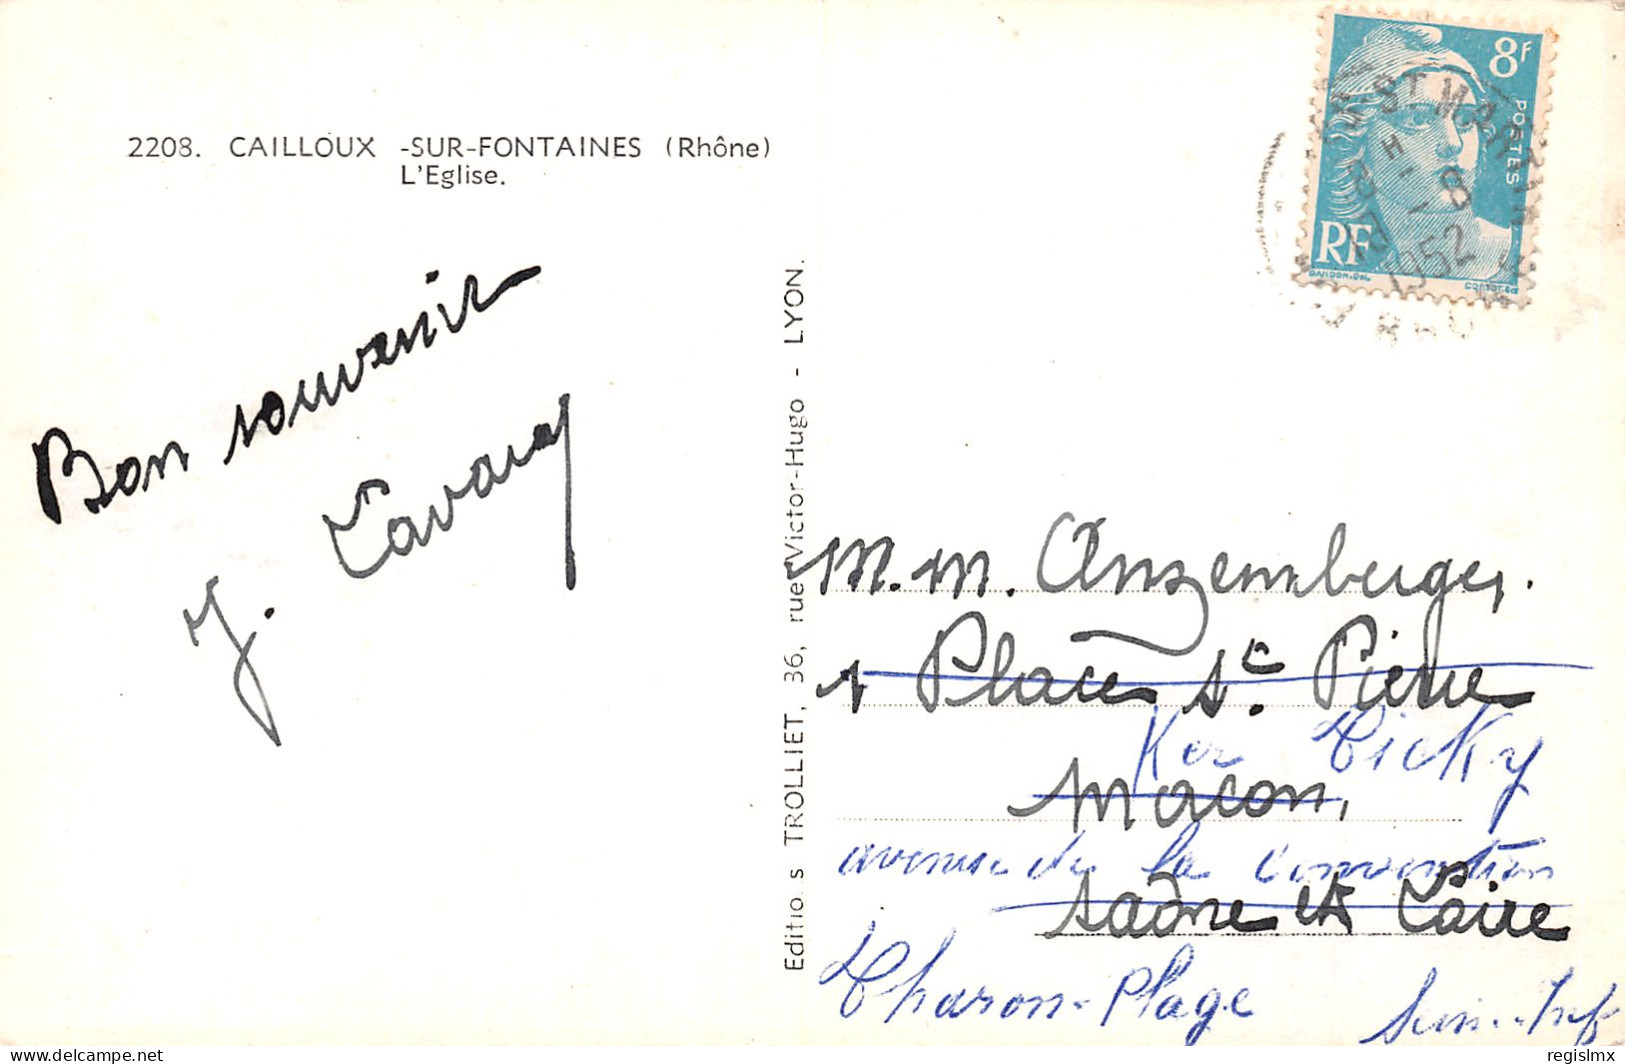 2208. CAILLOUX -SUR-FONTAINES (Rhône)
L'Eglise.
Bon souvenir
J.
Editio s TROLLIET, 36, rue Victor-Hugo - LYON.
8F
POSTES
RF
GANDON.DEL
ST MARTIN
H
-8
1952
RHO
M. M. Anzemberger.
1 Place St. Pierre
Ker Ticky
Macon,
avenue de la Convention
Saône et Loire
Tharon-Plage
Inf
regislmx